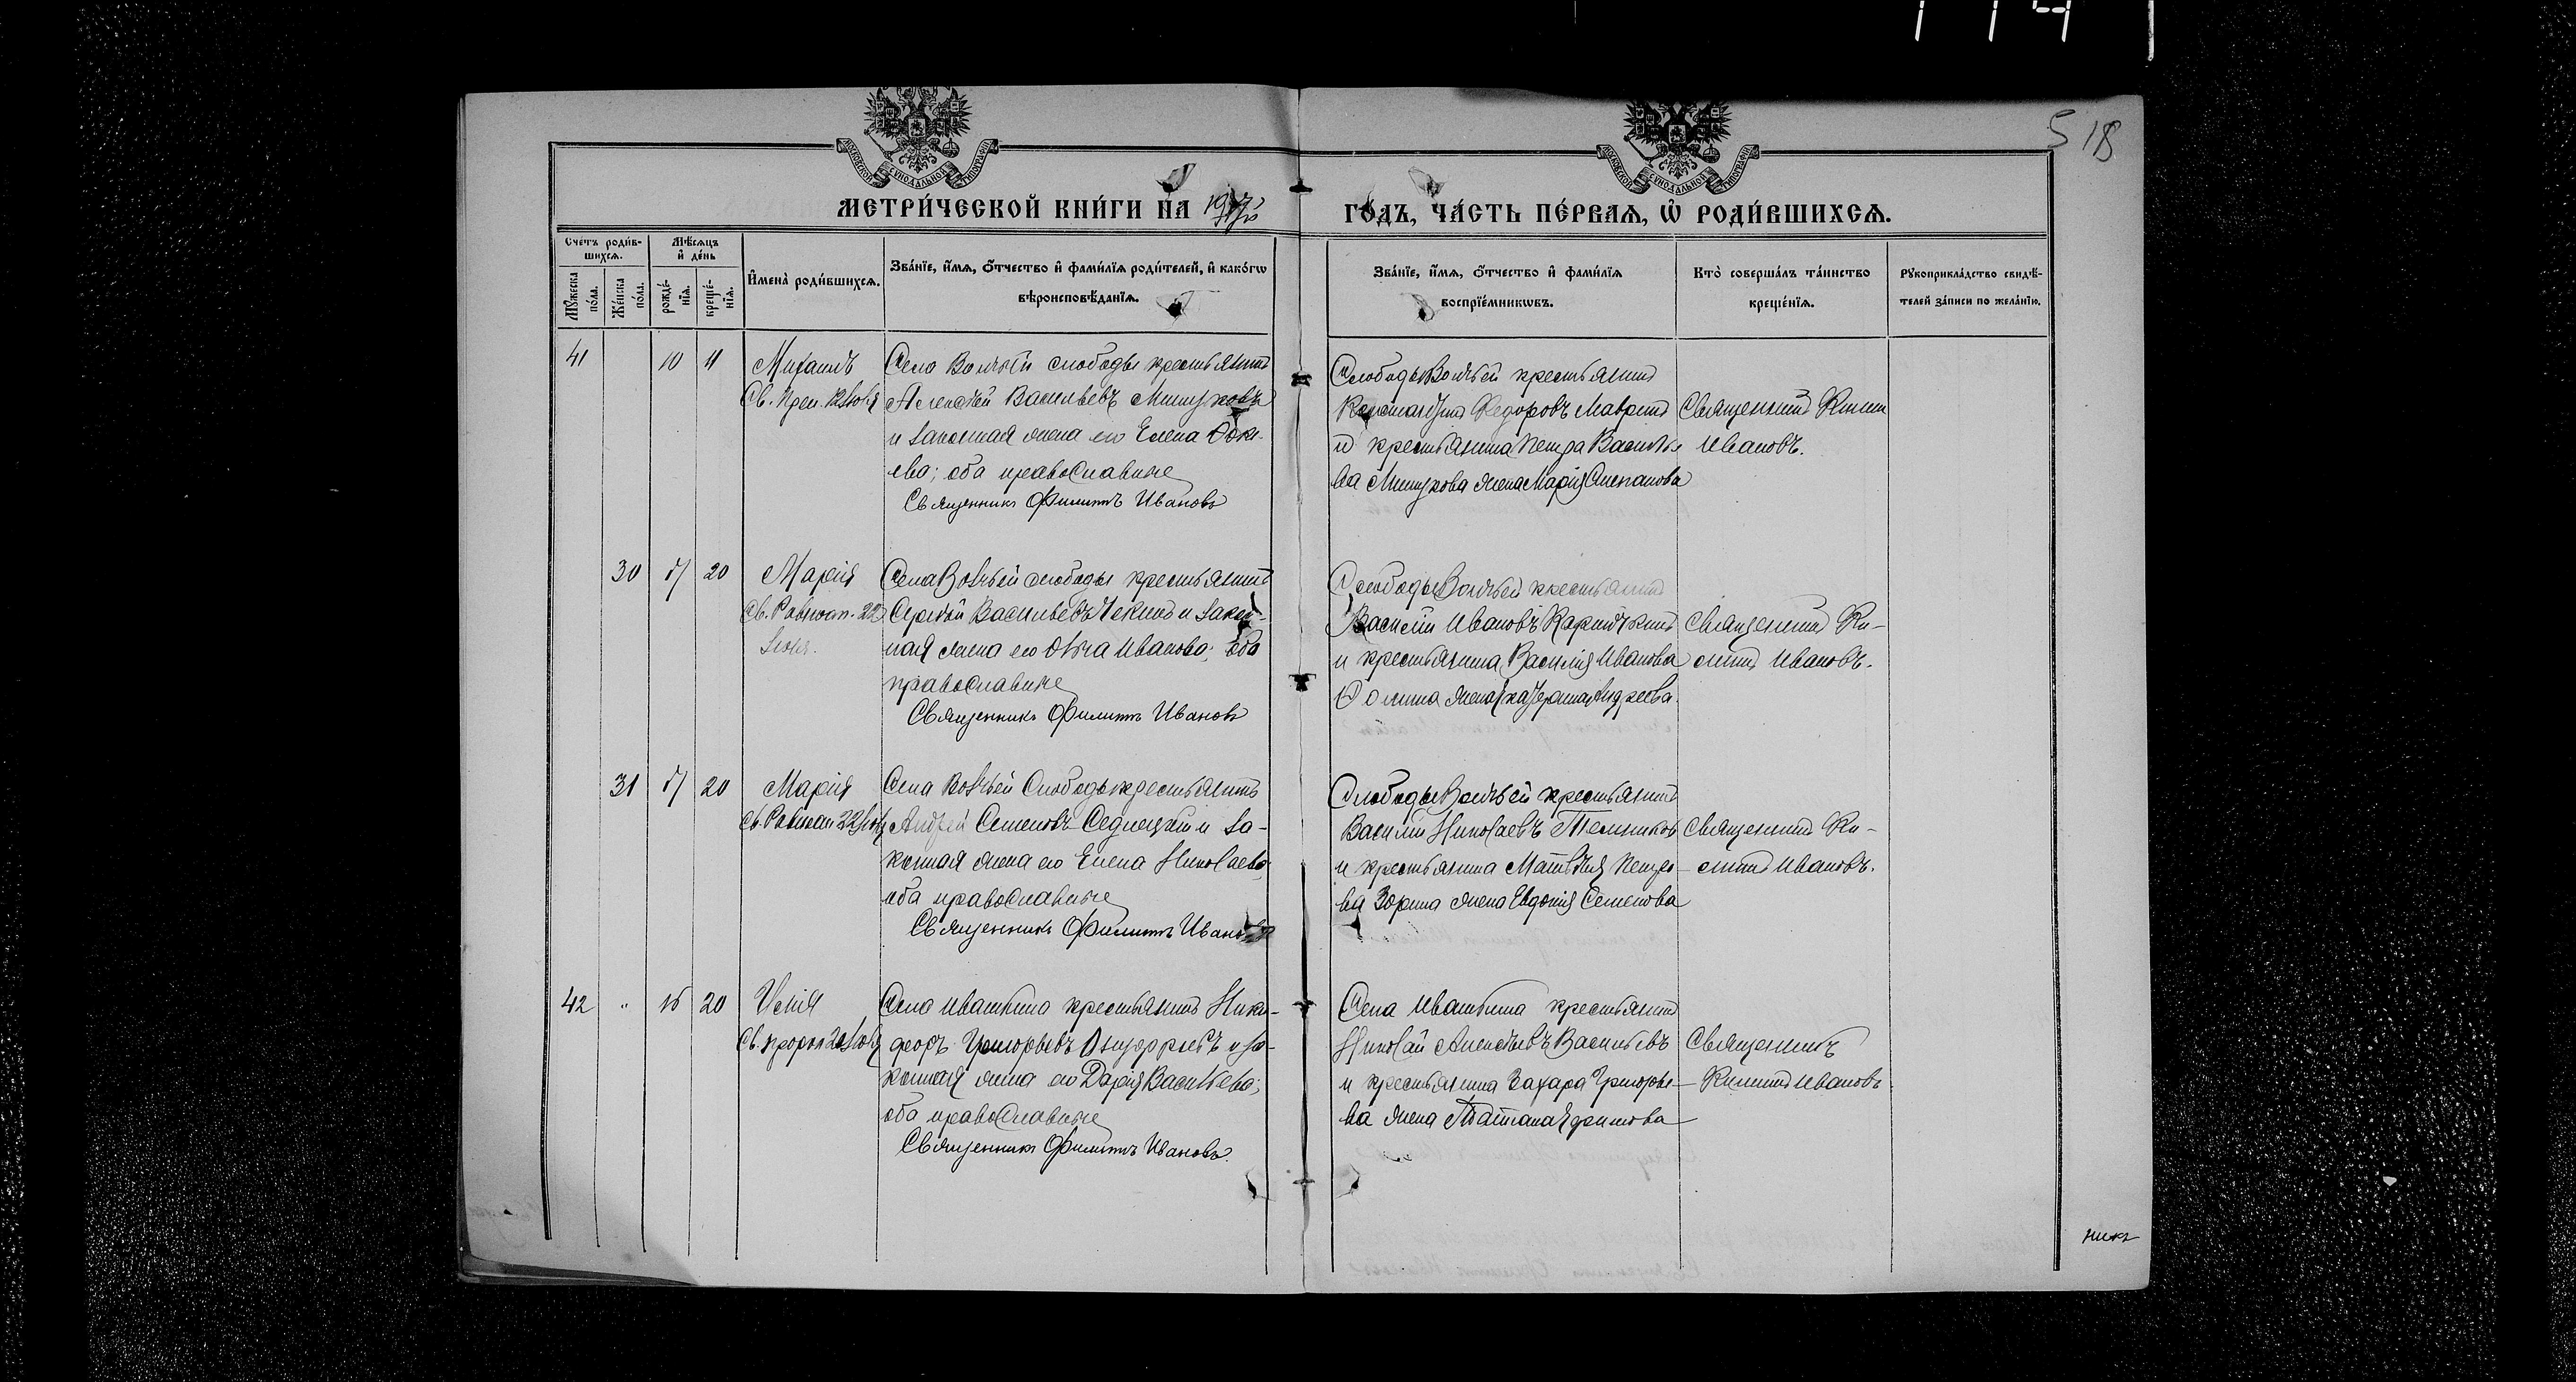 518
МЕТРИ́ЧЕСКОЙ КНИ́ГИ НА 1917
ГО́ДЪ, ЧА́СТЬ ПЕ́РВАѦ, Ѿ РОДИ́ВШИХСѦ.
Сче́тъ роди́в-
шихсѧ.
Мѣ́сѧцъ
и҆ де́нь
Мꙋ́жеска
по́ла.
Же́нска
по́ла.
рожде́-
нїѧ.
креще́-
нїѧ.
И҆мена̀ роди́вшихсѧ.
Зва́нїе, и҆́мѧ, ѻ҆́тчество и҆ фами́лїѧ роди́телей, и҆ како́гѡ
вѣроисповѣ́данїѧ.
Зва́нїе, и҆́мѧ, ѻ҆́тчество и҆ фами́лїѧ
воспрїе́мникѡвъ.
Кто̀ соверша́лъ та́инство
креще́нїѧ.
Рꙋкоприкла́дство свидѣ́-
телей за́писи по жела́нїю.
41 10 11 Михаилъ
Св. Преп. 12 Іюля
Село Волчьей слободы крестьянинъ
Алексѣй Васильевъ Мишуковъ
и законная жена его Елена
оба православные
Священникъ Филиппъ Ивановъ
Слободы Волчьей крестьянинъ
Константинъ Федоровъ Мавринъ
и крестьянина Петра Василье
ва Мишукова жена Марія Степанова
Священникъ Филип
Ивановъ.
30 17 20 Марія
Св. Равноап. 22
Іюля.
Села Волчьей слободы крестьянинъ
Сергѣй Васильевъ Чекинъ и закон-
ная жена его Ольга Иванова; оба
православные
Священникъ Филиппъ Ивановъ
Слободы Волчьей крестьянинъ
Василій Ивановъ
и крестьянина Василія Иванова
жена Екатерина Андреева.
Священникъ Фи-
липпъ Ивановъ.
31 17 20 Марія
Св. Равноап 22 Іюля
Села Волчьей Слободы крестьянинъ
Андрей Семеновъ Седлецкій и за-
конная жена его Елена Николаева,
оба православные
Священникъ Филиппъ Ивановъ
Слободы Волчьей крестьянинъ
Василій Николаевъ
и крестьянина Матвѣя Петро-
ва Зорина жена Евдокія Семенова
Священникъ Фи-
липпъ Ивановъ.
42 " 16 20 Илія
Св. пророк 20 Іюля
Села Ивашкина крестьянинъ Ники-
форъ Григорьевъ и за-
конная жена его Дарія Васильева;
оба православные
Священникъ Филиппъ Ивановъ.
Села Ивашкина крестьянинъ
Николай Алексѣевъ Васильевъ
и крестьянина Захара Григорье-
ва жена Татiана Ефимова
Священникъ
Филиппъ Ивановъ
никъ